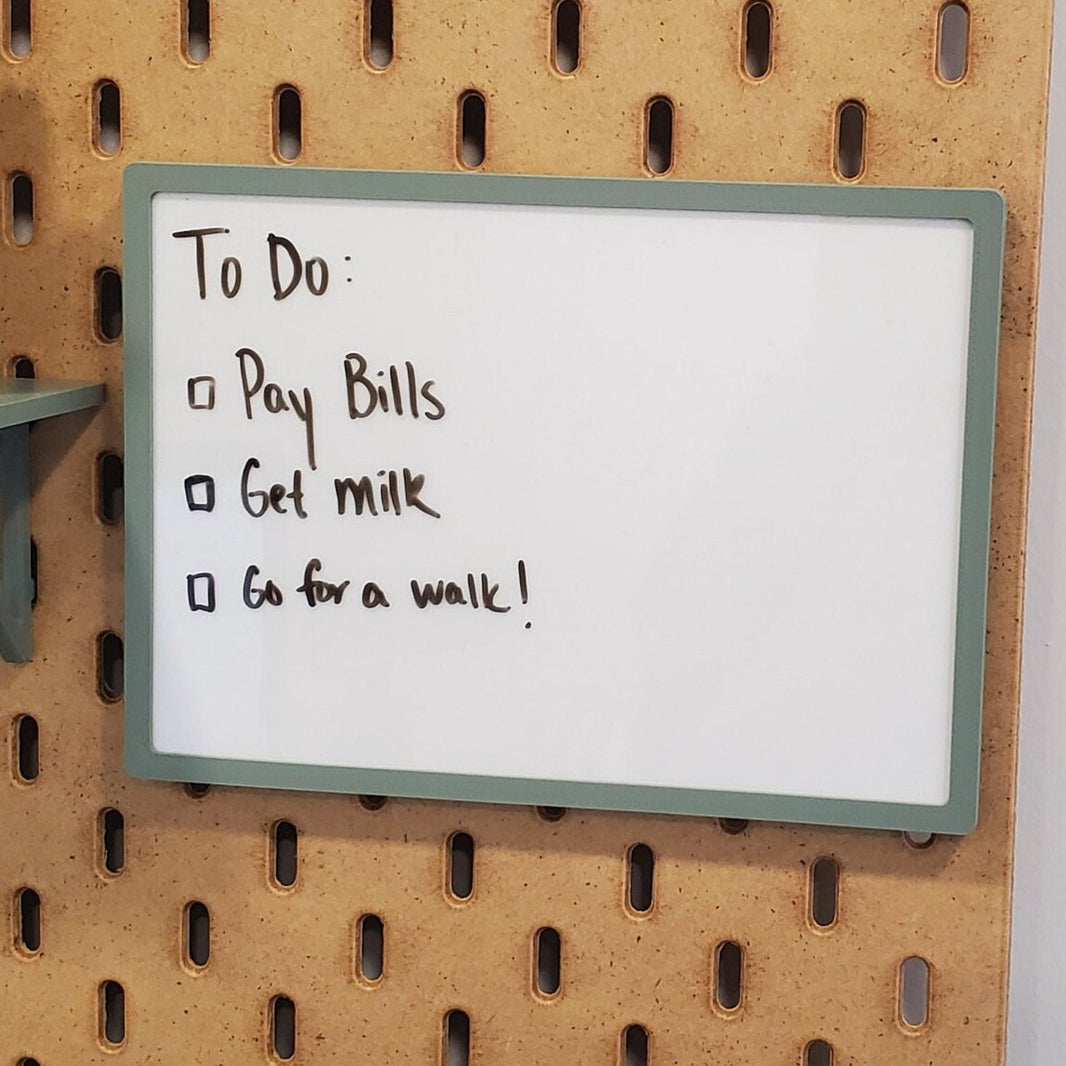 To Do:
☐ Pay Bills
☐ Get milk
☐ Go for a walk!